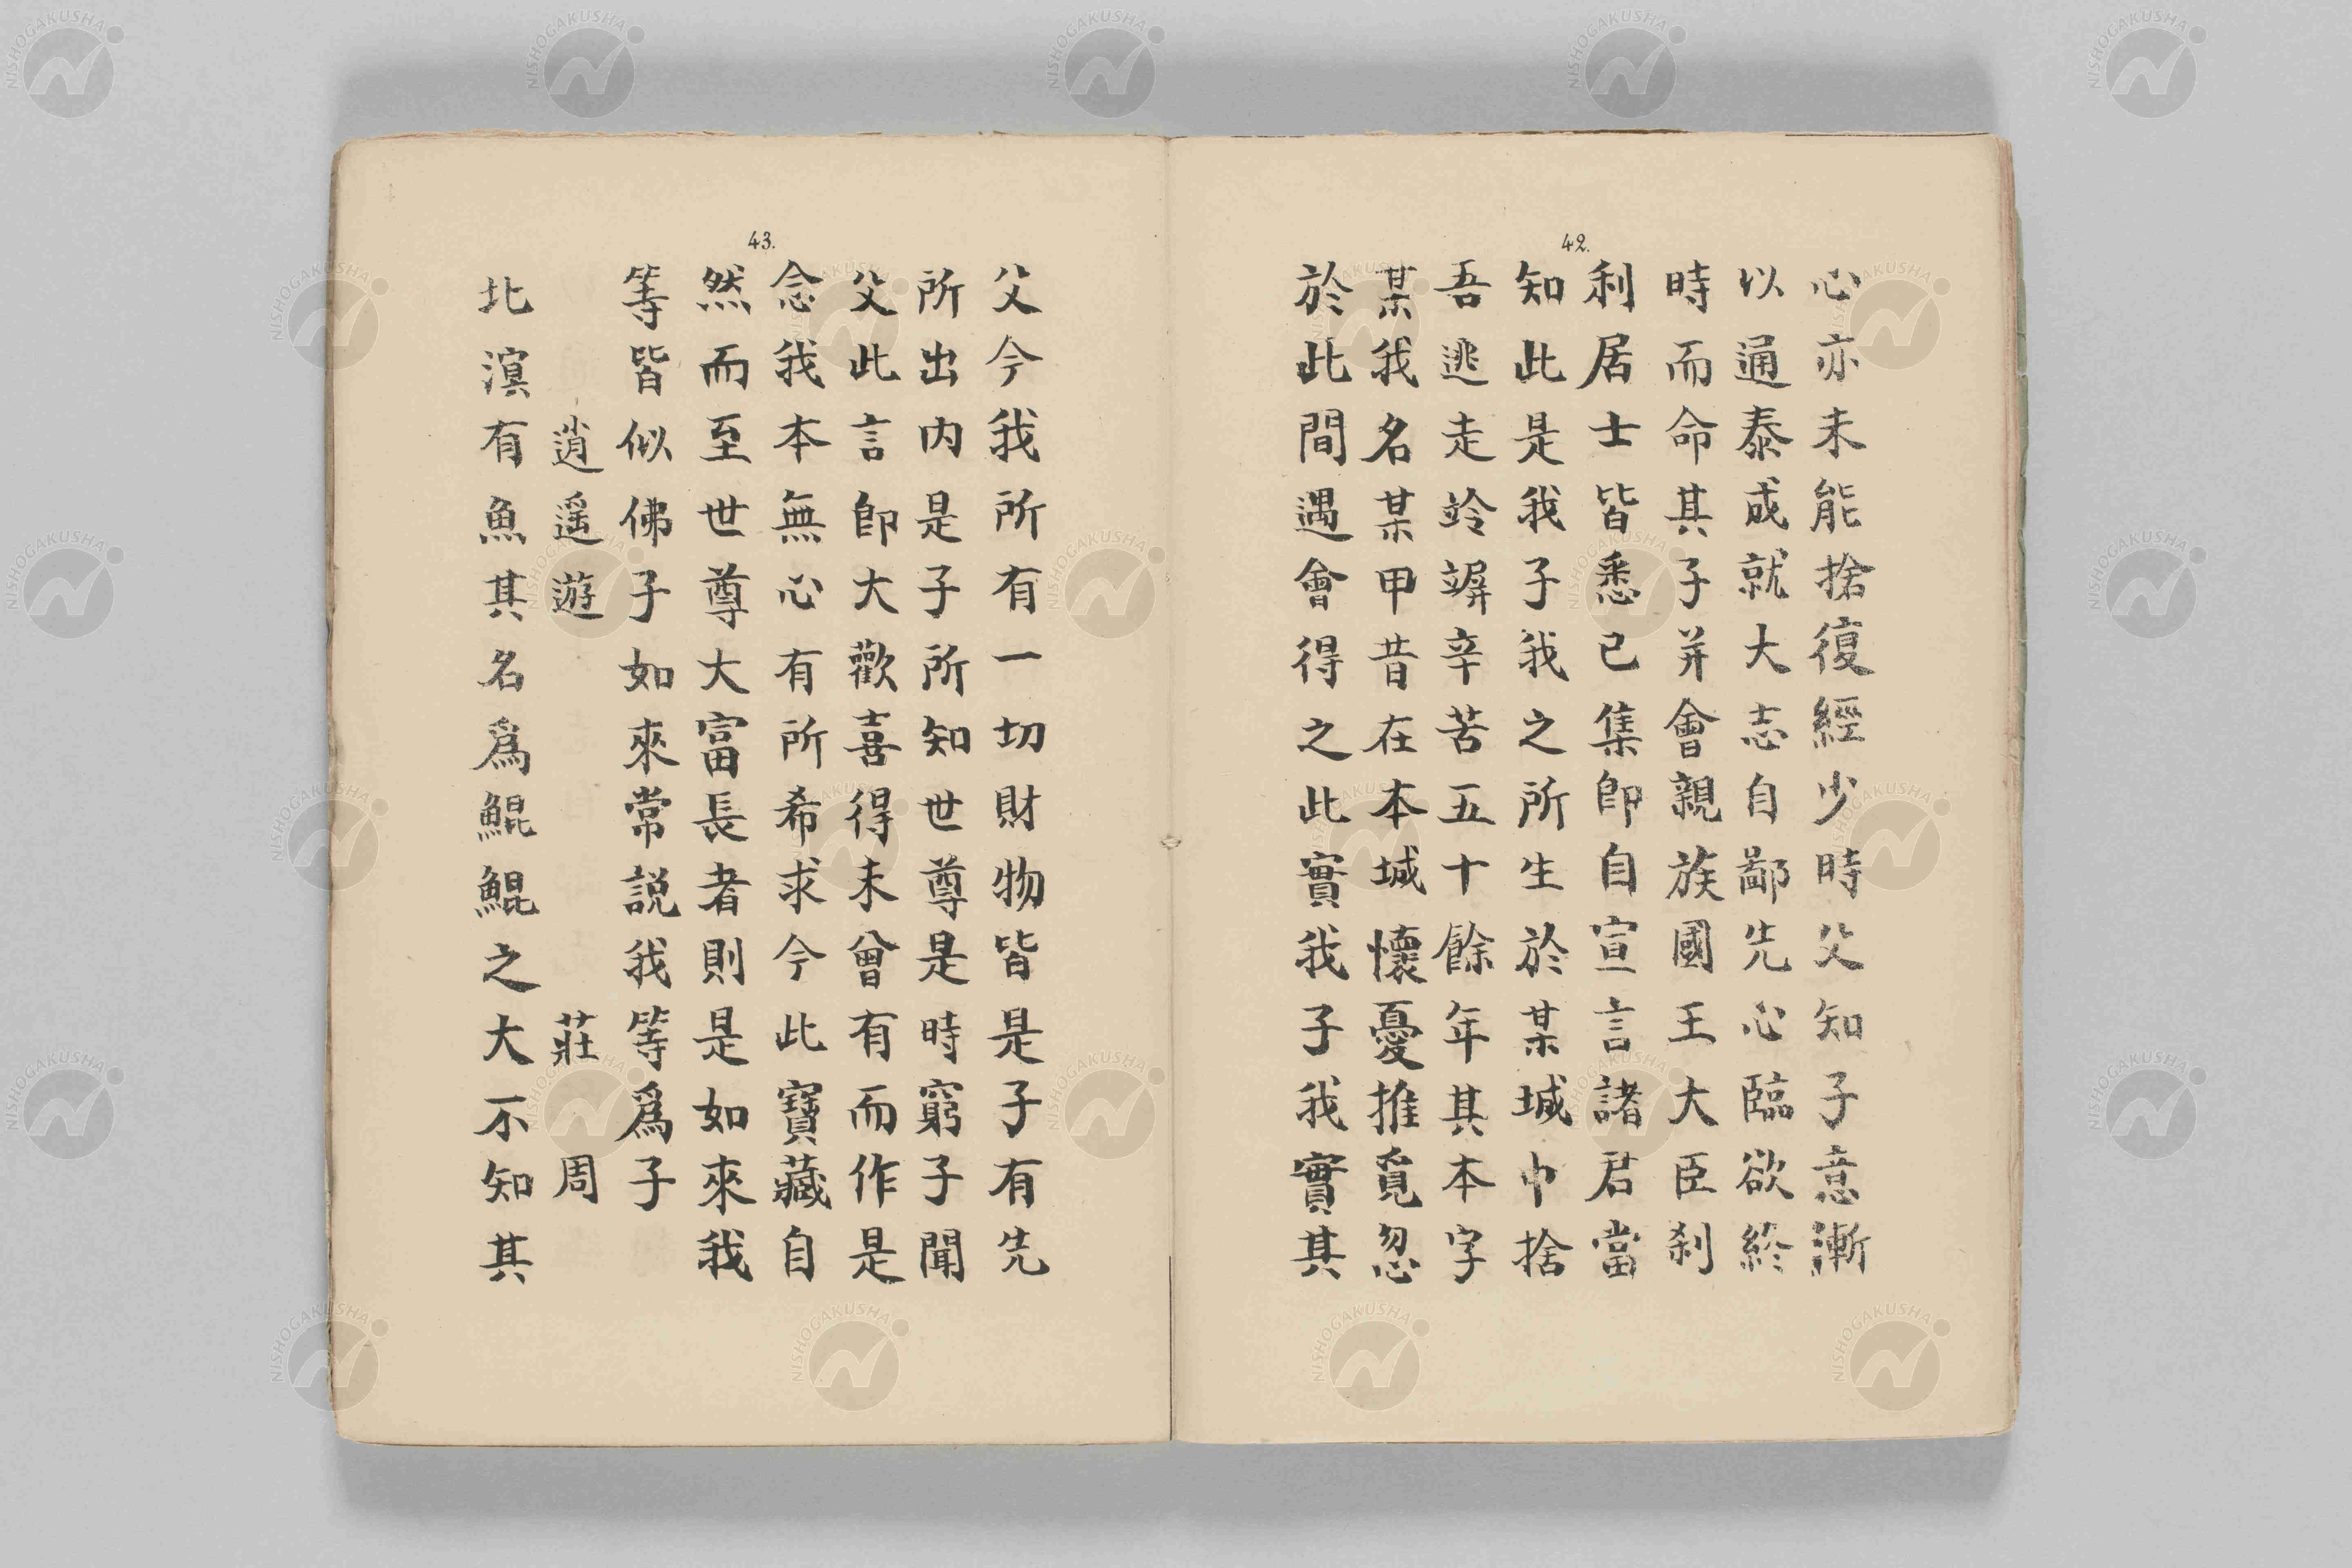 42.
心亦未能捨復經少時父知子意漸
以通泰成就大志自鄙先心臨欲終
時而命其子并會親族國王大臣刹
利居士皆悉已集即自宣言諸君當
知此是我子我之所生於某城中捨
吾逃走竛竮辛苦五十餘年其本字
某我名某甲昔在本城懷憂推覓忽
於此間遇會得之此實我子我實其
43.
父今我所有一切財物皆是子有先
所出内是子所知世尊是時窮子聞
父此言即大歡喜得未曾有而作是
念我本無心有所希求今此寶藏自
然而至世尊大富長者則是如來我
等皆似佛子如來常説我等爲子
逍遥遊 莊周
北溟有魚其名爲鯤鯤之大不知其
NISHOGAKUSHA